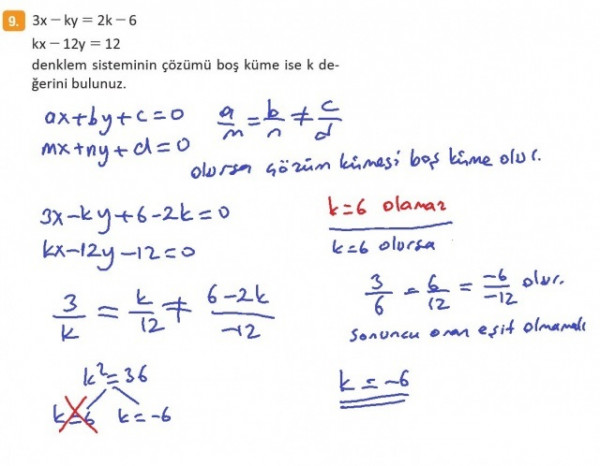 9. 3x – ky = 2k – 6
kx – 12y = 12
denklem sisteminin çözümü boş küme ise k de-
ğerini bulunuz.
ax+by+c=0 a/m = b/n ≠ c/d
mx+ny+d=0
olursa çözüm kümesi boş küme olur.
3x-ky+6-2k=0
kx-12y-12=0
3/k = k/12 ≠ 6-2k/-12
k²=36
k=6 k=-6
k=6 olamaz
k=6 olursa
3/6 = 6/12 = -6/-12 olur.
Sonuncu oran eşit olmamalı
k=-6